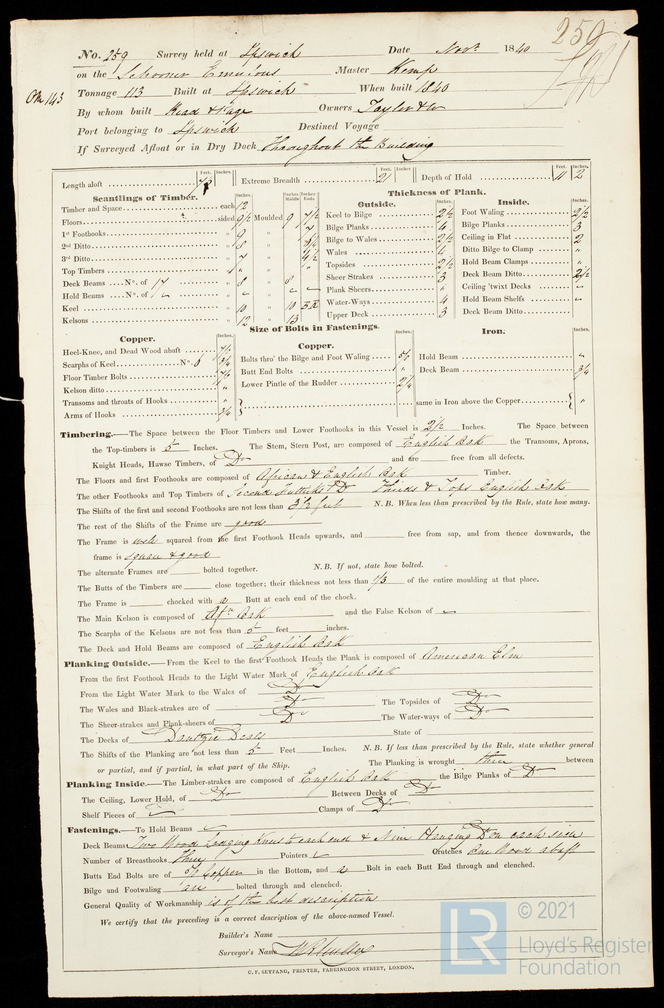 259
No. 259 Survey held at Ipswich Date Novr 1840
on the Schooner Emulous Master Kemp
Tonnage 113 Built at Ipswich When built 1840
By whom built Read & Page Owners Taylor & Co
Port belonging to Ipswich Destined Voyage
If Surveyed Afloat or in Dry Dock Throughout the Building
Feet. Inches. Feet. Inches. Feet. Inches.
Length aloft Extreme Breadth 21 Depth of Hold 11 2
Scantlings of Timber. Thickness of Plank.
Outside. Inside.
Timber and Space each 12 Keel to Bilge 2½ Foot Waling 2½
Floors sided 9½ Moulded 9 7½ Bilge Planks 4 Bilge Planks 3
1st Foothooks 9 " 7 Bilge to Wales 2½ Ceiling in Flat 2
2nd Ditto 8 " Wales 4 Ditto Bilge to Clamp "
3rd Ditto 7 " 4½ Topsides 2½ Hold Beam Clamps "
Top Timbers " Sheer Strakes 3 Deck Beam Ditto 2½
Deck Beams No. of 17 8 " 8 Plank Sheers Ceiling 'twixt Decks
Hold Beams No. of Water-Ways 4 Hold Beam Shelfs
Keel 10 " 10 Upper Deck 3 Deck Beam Ditto
Kelsons 12 " 13
Size of Bolts in Fastenings.
Copper. Copper. Iron.
Heel-Knee, and Dead Wood abaft 7/8 Bolts thro' the Bilge and Foot Waling 5/8 Hold Beam
Scarphs of Keel No. 6 3/4 Butt End Bolts " Deck Beam 3/4
Floor Timber Bolts 7/8 Lower Pintle of the Rudder 2¼
Kelson ditto "
Transoms and throats of Hooks " same in Iron above the Copper "
Arms of Hooks 3/4
Timbering.—The Space between the Floor Timbers and Lower Foothooks in this Vessel is 2½ Inches. The Space between
the Top-timbers is 5 Inches. The Stem, Stern Post, are composed of English Oak the Transoms, Aprons,
Knight Heads, Hawse Timbers, of Do and are free from all defects.
The Floors and first Foothooks are composed of African & English Oak Timber.
The other Foothooks and Top Timbers of Second Futtocks Do Thirds & Tops English Oak
The Shifts of the first and second Foothooks are not less than 3½ feet N. B. When less than prescribed by the Rule, state how many.
The rest of the Shifts of the Frame are good
The Frame is well squared from the first Foothook Heads upwards, and free from sap, and from thence downwards, the
frame is square & good
The alternate Frames are bolted together. N. B. If not, state how bolted.
The Butts of the Timbers are close together; their thickness not less than 1/3 of the entire moulding at that place.
The Frame is chocked with a Butt at each end of the chock.
The Main Kelson is composed of Afrn Oak and the False Kelson of
The Scarphs of the Kelsons are not less than 5 feet inches.
The Deck and Hold Beams are composed of English Oak
Planking Outside.—From the Keel to the first Foothook Heads the Plank is composed of American Elm
From the first Foothook Heads to the Light Water Mark of English Oak
From the Light Water Mark to the Wales of Do
The Wales and Black-strakes are of Do The Topsides of Do
The Sheer-strakes and Plank-sheers of Do The Water-ways of Do
The Decks of Dantzic Deals State of
The Shifts of the Planking are not less than 5 Feet Inches. N. B. If less than prescribed by the Rule, state whether general
or partial, and if partial, in what part of the Ship. The Planking is wrought three between
Planking Inside.—The Limber-strakes are composed of English Oak the Bilge Planks of Do
The Ceiling, Lower Hold, of Do Between Decks of Do
Shelf Pieces of Clamps of Do
Fastenings.—To Hold Beams
Deck Beams Two Wood Lodging Knees to each end & Nine Hanging Do on each side
Number of Breasthooks Three Pointers Crutches One Wood abaft
Butts End Bolts are of Copper in the Bottom, and a Bolt in each Butt End through and clenched.
Bilge and Footwaling are bolted through and clenched.
General Quality of Workmanship is of the best description
We certify that the preceding is a correct description of the above-named Vessel.
Builder's Name
Surveyor's Name
C. F. SEYFANG, PRINTER, FARRINGDON STREET, LONDON.
LR © 2021
Lloyd's Register
Foundation